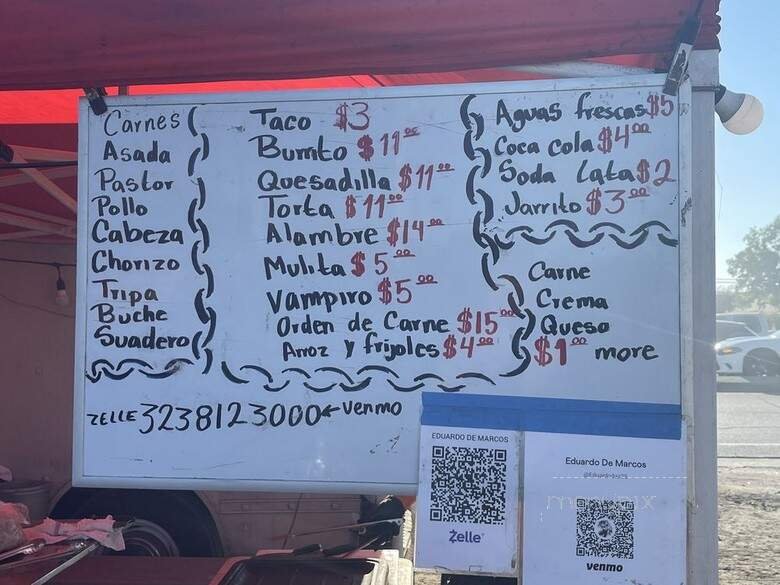 Carnes
Asada
Pastor
Pollo
Cabeza
Chorizo
Tripa
Buche
Suadero
Taco $3
Burrito $11.00
Quesadilla $11.00
Torta $11.00
Alambre $14.00
Mulita $5.00
Vampiro $5.00
Orden de Carne $15.00
Arroz y frijoles $4.00
Aguas frescas $5
Coca cola $4.00
Soda Lata $2
Jarrito $3.00
Carne
Crema
Queso
$1.00 more
ZELLE 3238123000 ← venmo
EDUARDO DE MARCOS
Zelle
Eduardo De Marcos
menupix
venmo